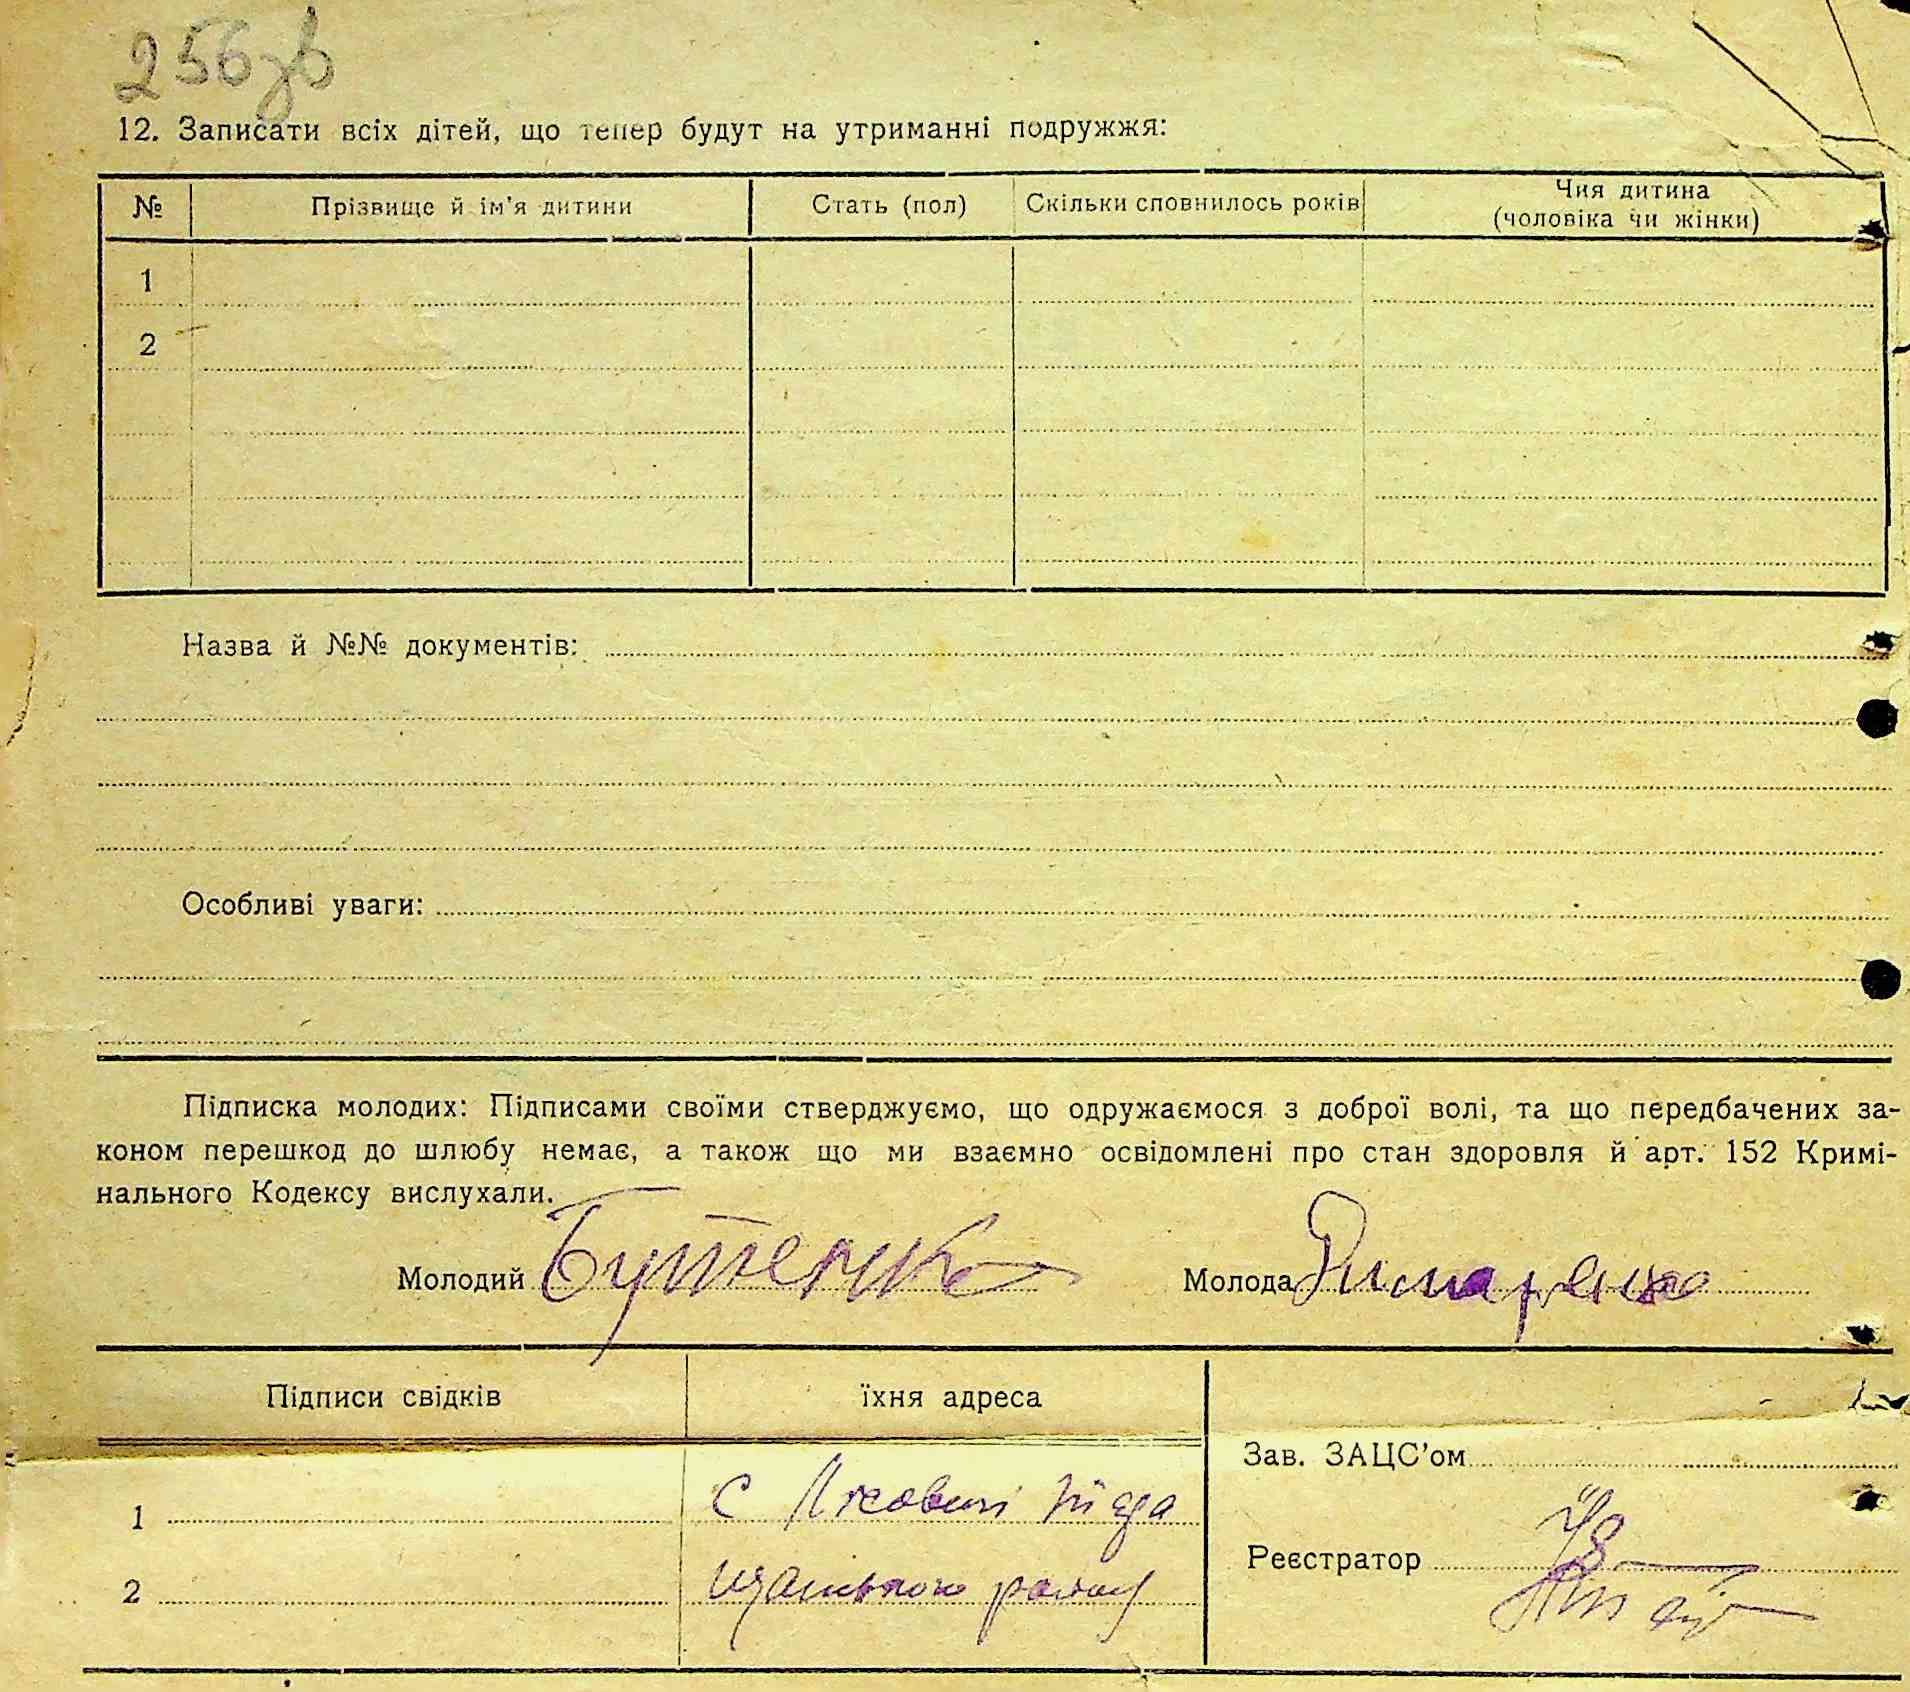 256зв
12. Записати всіх дітей, що тепер будут на утриманні подружжя:
№ Прізвище й ім'я дитини Стать (пол) Скільки сповнилось років Чия дитина (чоловіка чи жінки)
1
2
Назва й №№ документів:
Особливі уваги:
Підписка молодих: Підписами своїми стверджуємо, що одружаємося з доброї волі, та що передбачених за-
коном перешкод до шлюбу немає, а також що ми взаємно освідомлені про стан здоровля й арт. 152 Кримі-
нального Кодексу вислухали.
Молодий Бутенко Молода Римаренко
Підписи свідків їхня адреса
Зав. ЗАЦС'ом
1 с
Реєстратор
2 району